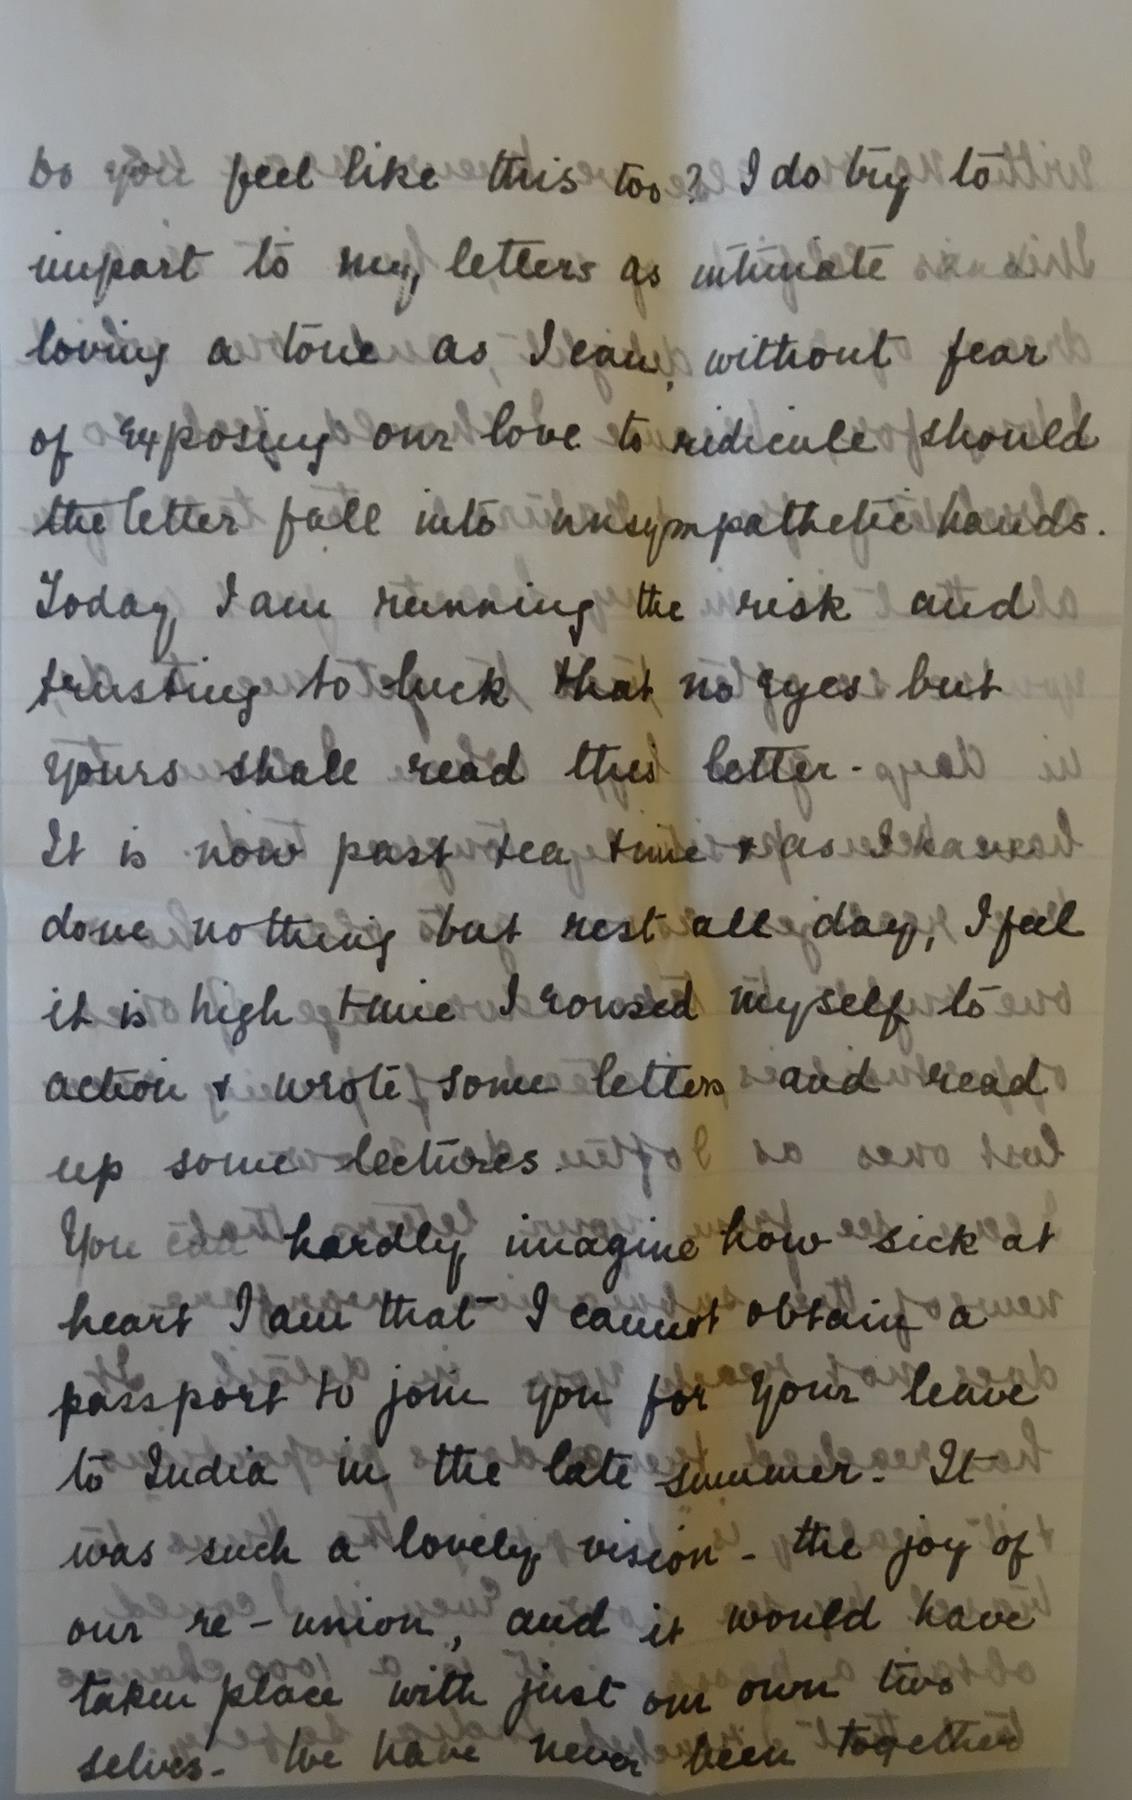 Do you feel like this too? I do try to
impart to my letters as intimate
loving a tone as I can, without fear
of exposing our love to ridicule should
the letter fall into unsympathetic hands.
Today I am running the risk and
trusting to luck that no eyes but
yours shall read this letter-
It is now past tea time & as I have
done nothing but rest all day, I feel
it is high time I roused myself to
action & wrote some letters and read
up some lectures.
You can hardly imagine how sick at
heart I am that I cannot obtain a
passport to join you for your leave
to India in the late summer. It
was such a lovely vision - the joy of
our re-union, and it would have
taken place with just our own two
selves- We have never been together